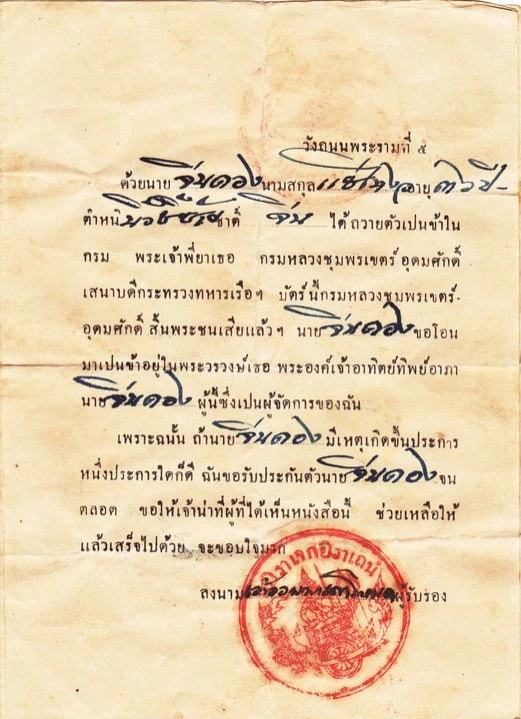 วังถนนพระรามที่ ๕
ด้วยนาย จิ่นดอง นามสกุล แซ่ อายุ ปี
ตำหนิ ชาติ จีน ได้ถวายตัวเปนข้าใน
กรม พระเจ้าพี่ยาเธอ กรมหลวงชุมพรเขตร์อุดมศักดิ์
เสนาบดีกระทรวงทหารเรือฯ บัตร์นี้กรมหลวงชุมพรเขตร์-
อุดมศักดิ์ สิ้นพระชนเสียแล้วฯ นาย จิ่นดอง ขอโอน
มาเปนข้าอยู่ในพระวรวงษ์เธอ พระองค์เจ้าอาทิตย์ทิพย์อาภา
นาย จิ่นดอง ผู้นี้ซึ่งเปนผู้จัดการของฉัน
เพราะฉนั้น ถ้านาย จิ่นดอง มีเหตุเกิดขึ้นประการ
หนึ่งประการใดก็ดี ฉันขอรับประกันตัวนาย จิ่นดอง จน
ตลอด ขอให้เจ้าน่าที่ผู้ที่ได้เห็นหนังสือนี้ ช่วยเหลือให้
แล้วเสร็จไปด้วย จะขอบใจมาก
ลงนาม ผู้รับรอง